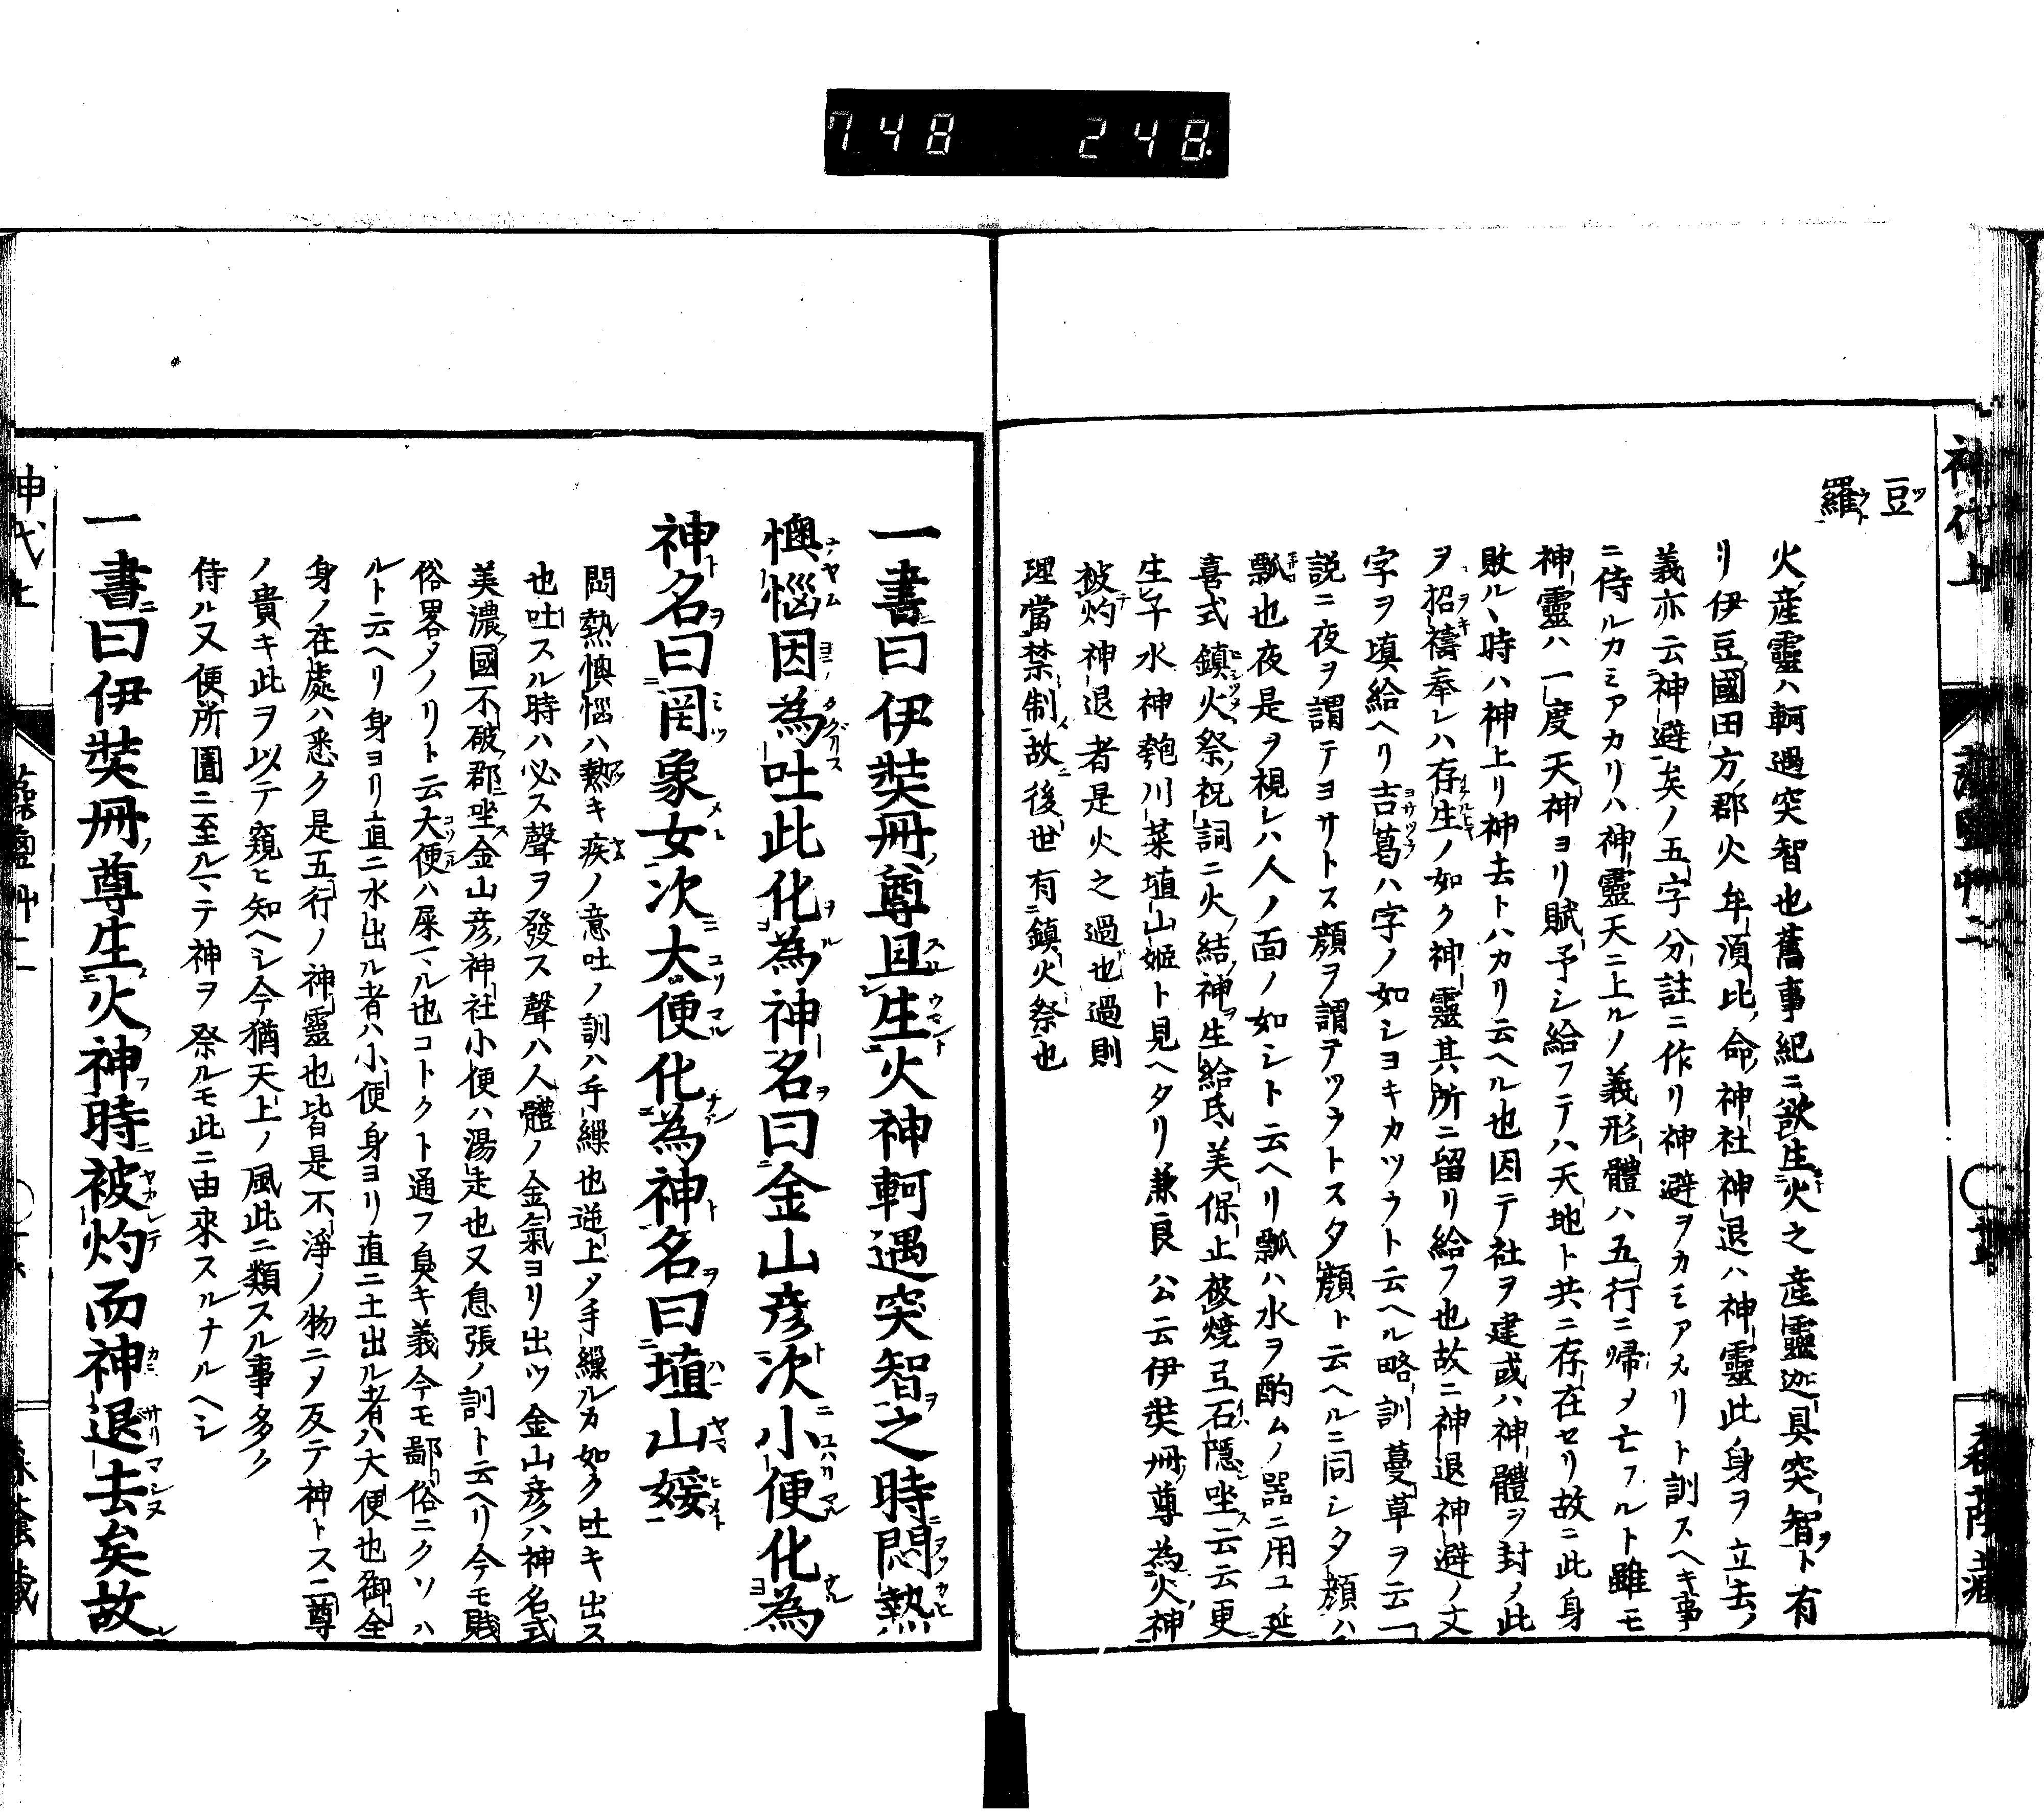 748 248
神代上
豆
羅
火産靈ハ軻遇突智也舊事紀ニ欲生火之産靈迦具突智ト有
リ伊豆國田方郡火牟湏比命神社神退ハ神靈此身ヲ立去ノ
義亦云神避矣ノ五字分註ニ作リ神避ヲカミアカリト訓スヘキ事
ニ侍ルカミアカリハ神靈天ニ上ルノ義形體ハ五行ニ帰メ亡フルト雖モ
神靈ハ一度天神ヨリ賦予シ給フテハ天地ト共ニ存在セリ故ニ此身
敗ルヽ時ハ神上リ神去トハカリ云ヘル也因テ社ヲ建或ハ神體ヲ封ノ此
ヲ招禱奉レハ存生ノ如ク神靈其所ニ留リ給フ也故ニ神退神避ノ文
字ヲ填給ヘリ吉葛ハ字ノ如シヨキカツウト云ヘル略訓蔓草ヲ云一
説ニ夜ヲ謂テヨサトス顔ヲ謂テツウトス夕顔ト云ヘルニ同シ夕顔ハ
瓢也夜是ヲ視レハ人ノ面ノ如シト云ヘリ瓢ハ水ヲ酌ムノ器ニ用ユ延
喜式鎮火祭祝詞ニ火結神生給氐美保止被焼弖石隠坐云云更
生子水神匏川菜埴山姫ト見ヘタリ兼良公云伊弉冊尊為火神
被灼神退者是火之過也過則
理當禁制故後世有鎮火祭也
一書曰伊弉冊尊且生火神軻遇突智之時悶熱
懊惱因為吐此化為神名曰金山彦次小便化為
神名曰罔象女次大便化為神名曰埴山媛
悶熱懊惱ハ熱キ疾ノ意吐ノ訓ハ手繰也逆上タ手繰ルカ如ク吐キ出ス
也吐スル時ハ必ス聲ヲ發ス聲ハ人體ノ金氣ヨリ出ツ金山彦ハ神名式
美濃國不破郡坐金山彦神社小便ハ湯走也又息張ノ訓ト云ヘリ今モ賎
俗畧タノリト云大便ハ屎マル也コトクト通フ臭キ義今モ鄙俗ニクソハ
ルト云ヘリ身ヨリ直ニ水出ル者ハ小便身ヨリ直ニ土出ル者ハ大便也御全
身ノ在處ハ悉ク是五行ノ神靈也皆是不淨ノ物ニタ反テ神トス二尊
ノ貴キ此ヲ以テ窺ヒ知ヘシ今猶天上ノ風此ニ類スル事多ク
侍ル又便所圊ニ至ルマテ神ヲ祭ルモ此ニ由來スルナルヘシ
一書曰伊弉冊尊生火神時被灼而神退去矣故